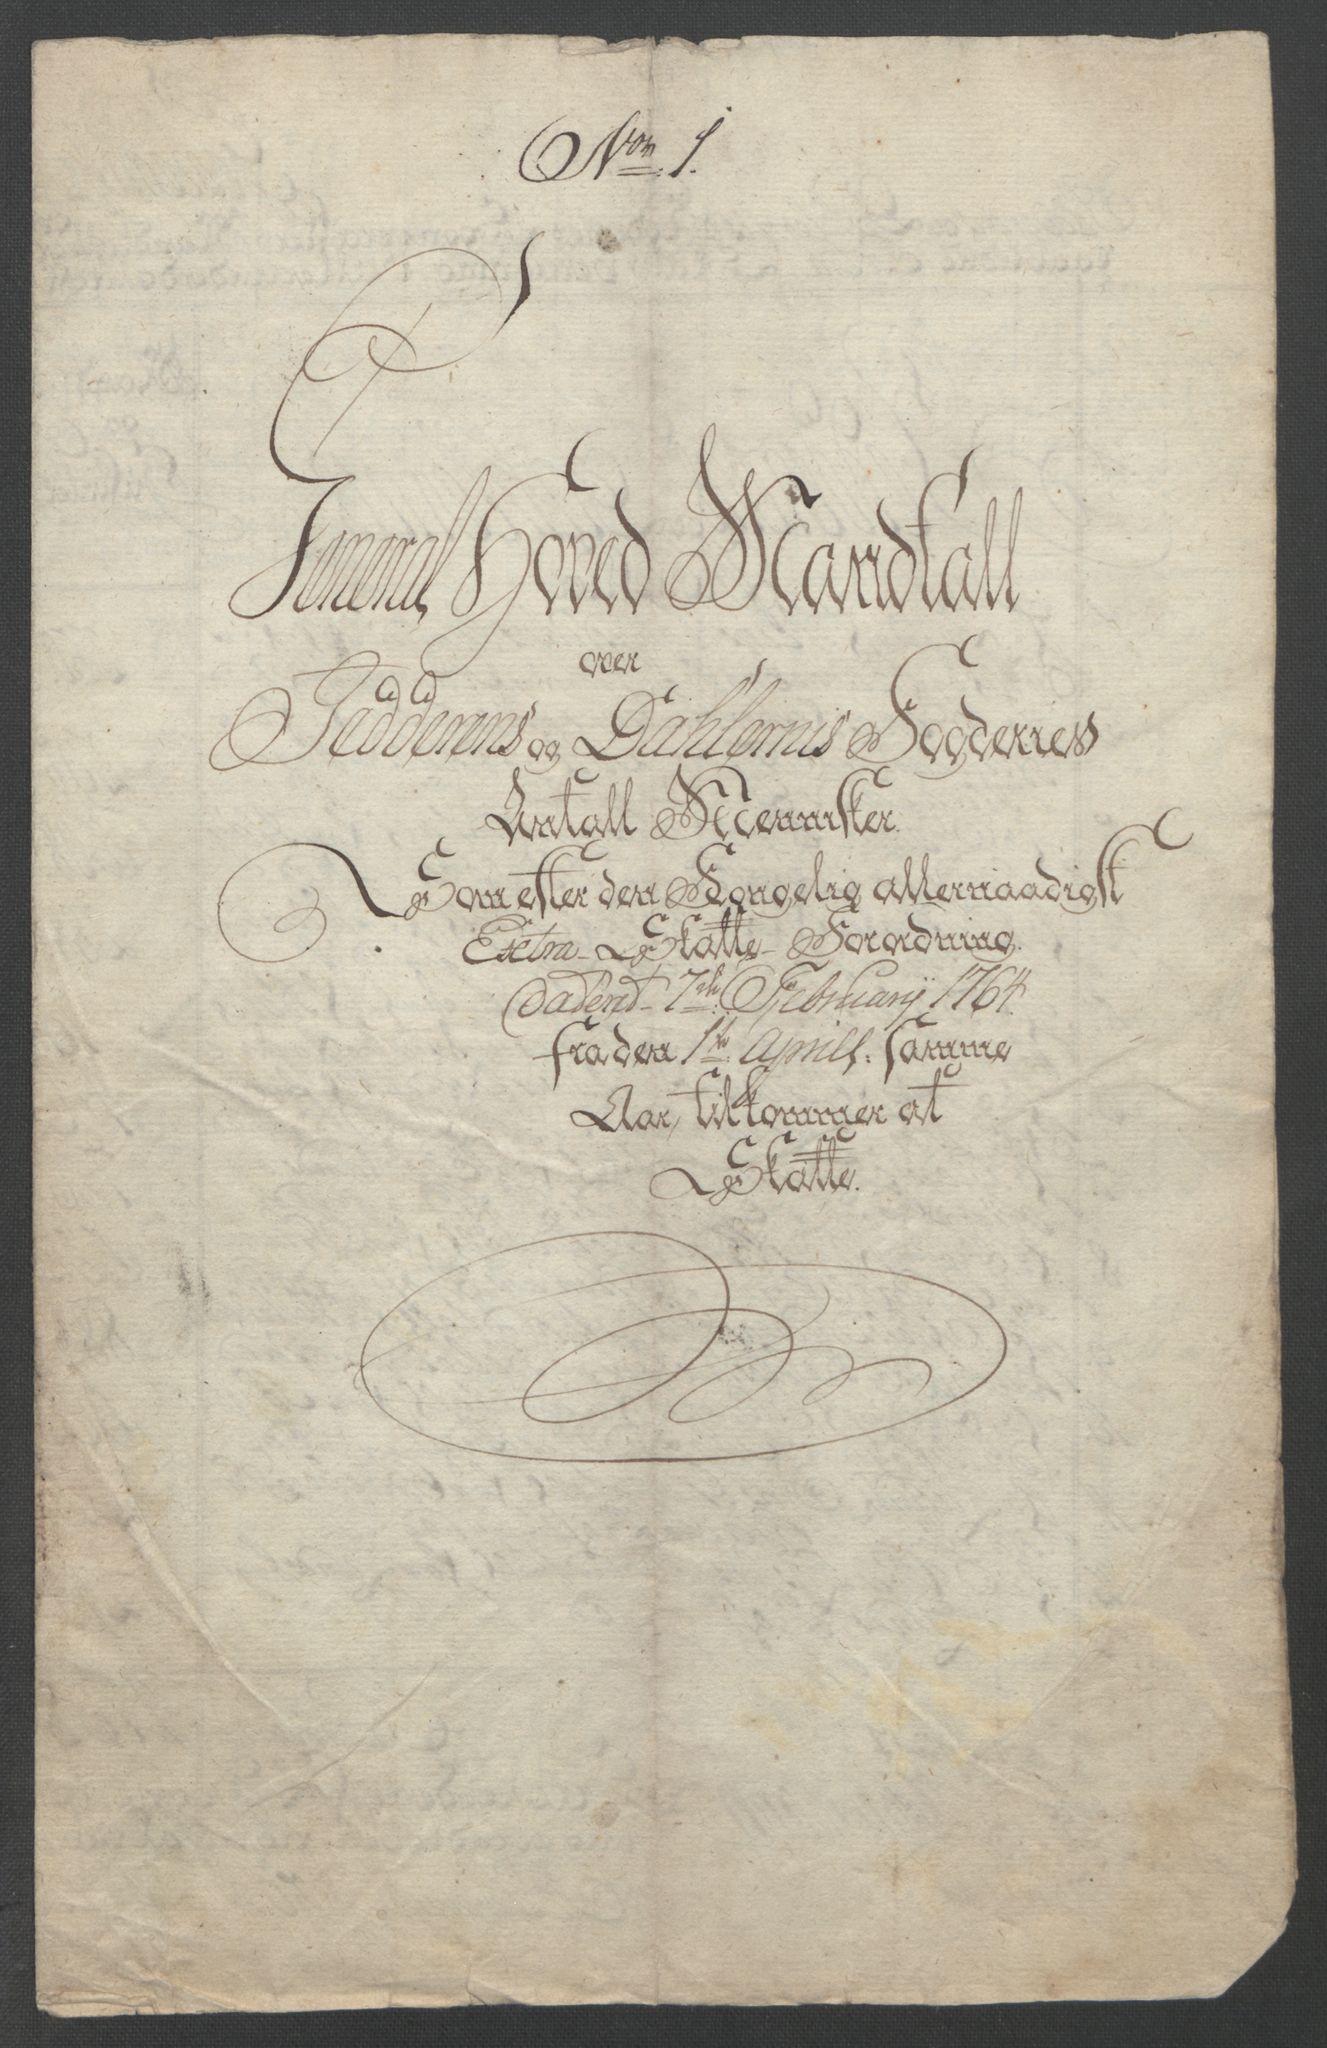 Nom. 1.
General Hoved Mandtall
over
Jedderens og Dahlernis Fogderies
Antall Mennisker.
Som efter den Kongelig allernaadigst
Extra- Skatte- Forordning.
dateret 7de Februarij 1764.
fra den 1te Aprill: samme
Aar, tilkommer at
Skatte.